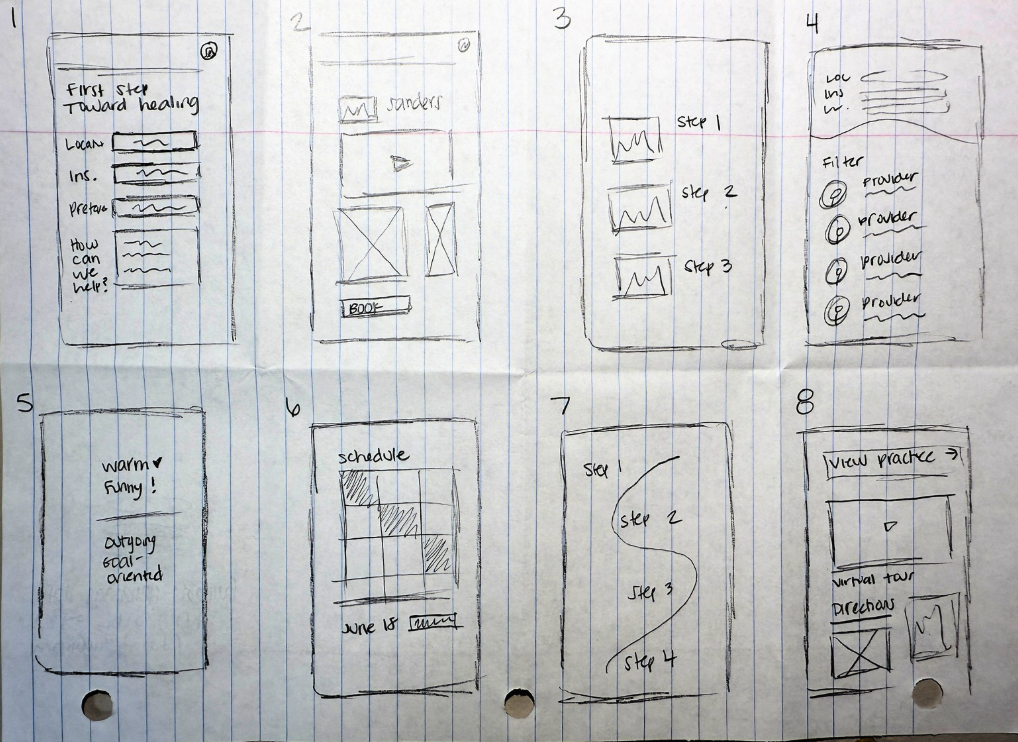 1
First step
Toward healing
Locan
Ins.
How
can
we
help?
2
Sanders
BOOK
3
Step 1
Step 2
Step 3
4
Loc
Ins
Filter
Provider
Provider
Provider
Provider
5
Warm
Funny!
Outgoing
Goal-
oriented
6
Schedule
June 18
7
Step 1
Step 2
Step 3
Step 4
8
View practice →
Virtual tour
Directions